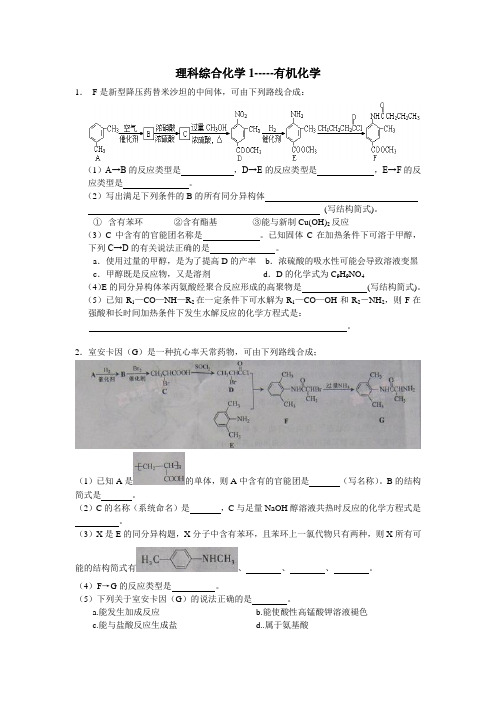 理科综合化学1-----有机化学
1． F是新型降压药替米沙坦的中间体，可由下列路线合成：
NO₂ NH₂ NHCCH₂CH₂CH₃
CH₃ 空气 催化剂 B 浓硝酸 浓硫酸 C 过量CH₃OH 浓硫酸,△ CH₃ H₂ 催化剂 CH₃ CH₃CH₂CH₂CCl CH₃
CH₃ COOCH₃ COOCH₃ COOCH₃
A D E F
（1）A→B的反应类型是 ，D→E的反应类型是 ，E→F的反
应类型是 。
（2）写出满足下列条件的B的所有同分异构体
(写结构简式)。
① 含有苯环 ②含有酯基 ③能与新制Cu(OH)₂反应
（3）C中含有的官能团名称是 。已知固体C在加热条件下可溶于甲醇，
下列C→D的有关说法正确的是 。
a．使用过量的甲醇，是为了提高D的产率 b．浓硫酸的吸水性可能会导致溶液变黑
c．甲醇既是反应物，又是溶剂 d．D的化学式为C₉H₉NO₄
（4）E的同分异构体苯丙氨酸经聚合反应形成的高聚物是 (写结构简式)。
（5）已知R₁—CO—NH—R₂在一定条件下可水解为R₁—CO—OH和R₂－NH₂，则F在
强酸和长时间加热条件下发生水解反应的化学方程式是：
。
2．室安卡因（G）是一种抗心率天常药物，可由下列路线合成；
A H₂ 催化剂 B Br₂ 催化剂 CH₃CHCOOH SOCl₂ CH₃CHCCl
Br Br
C D
CH₃ NH₂ CH₃ E
CH₃ NHCCHBr CH₃ CH₃ F 过量NH₃ CH₃ NHCCHNH₂ CH₃ CH₃ G
（1）已知A是 [CH₂—CH]n COOH 的单体，则A中含有的官能团是 （写名称）。B的结构
简式是 。
（2）C的名称（系统命名）是 ，C与足量NaOH醇溶液共热时反应的化学方程式是
。
（3）X是E的同分异构题，X分子中含有苯环，且苯环上一氯代物只有两种，则X所有可
能的结构简式有 H₃C— —NHCH₃ 、 、 、 。
（4）F→G的反应类型是 。
（5）下列关于室安卡因（G）的说法正确的是 。
a.能发生加成反应 b.能使酸性高锰酸钾溶液褪色
c.能与盐酸反应生成盐 d..属于氨基酸